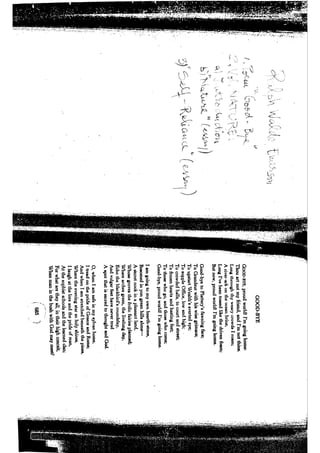 Ralph Waldo Emerson
1. Poem "Good-Bye"
2. Vol. NATURE:
a) "Introduction"
b) "Nature" (essay)
3) "Self-Reliance" (essay)
GOOD-BYE
GOOD-BYE, proud world! I'm going home:
Thou art not my friend, and I'm not thine.
Long through thy weary crowds I roam;
A river-ark on the ocean brine,
Long I've been tossed like the driven foam;
But now, proud world! I'm going home.
Good-bye to Flattery's fawning face;
To Grandeur with his wise grimace;
To upstart Wealth's averted eye;
To supple Office, low and high;
To crowded halls, to court and street;
To frozen hearts and hasting feet;
To those who go, and those who come;
Good-bye, proud world! I'm going home.
I am going to my own hearth-stone,
Bosomed in yon green hills alone,—
A secret nook in a pleasant land,
Whose groves the frolic fairies planned;
Where arches green, the livelong day,
Echo the blackbird's roundelay,
And vulgar feet have never trod
A spot that is sacred to thought and God.
O, when I am safe in my sylvan home,
I tread on the pride of Greece and Rome;
And when I am stretched beneath the pines,
Where the evening star so holy shines,
I laugh at the lore and the pride of man,
At the sophist schools and the learned clan;
For what are they all, in their high conceit,
When man in the bush with God may meet?